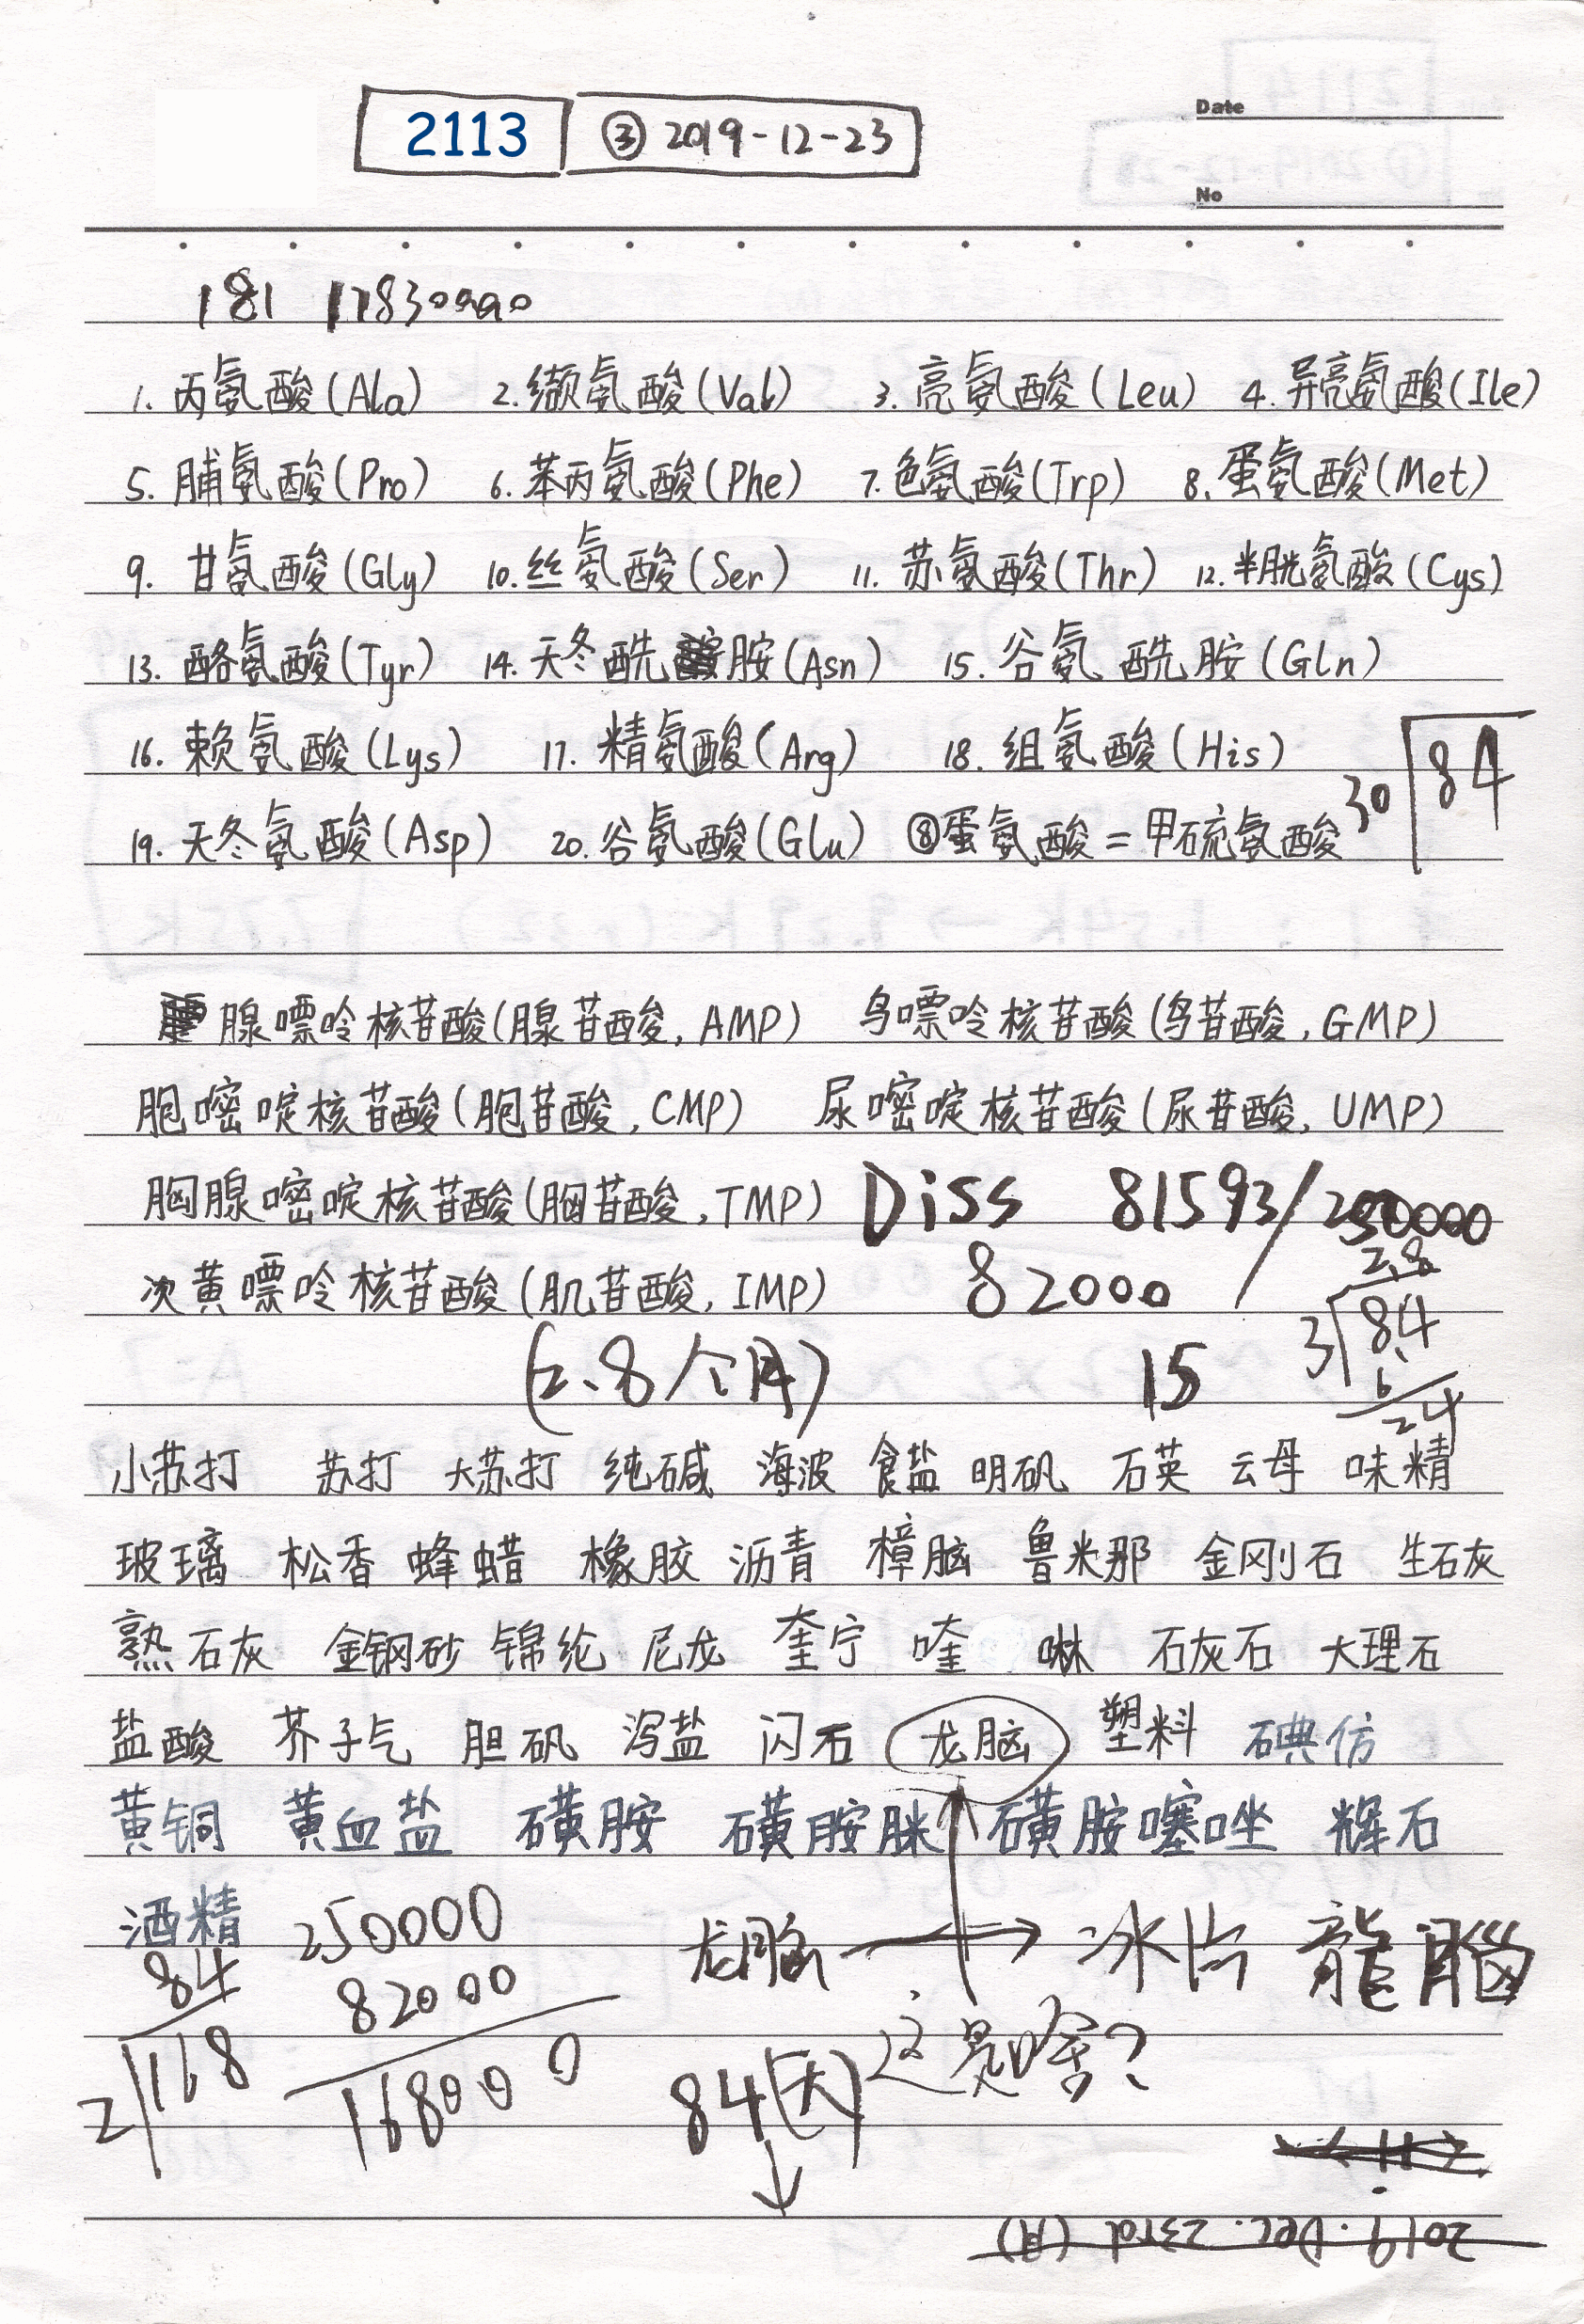 2113 ③ 2019-12-23
Date
No
181 17830000
1. 丙氨酸(Ala) 2. 缬氨酸(Val) 3. 亮氨酸(Leu) 4. 异亮氨酸(Ile)
5. 脯氨酸(Pro) 6. 苯丙氨酸(Phe) 7. 色氨酸(Trp) 8. 蛋氨酸(Met)
9. 甘氨酸(Gly) 10. 丝氨酸(Ser) 11. 苏氨酸(Thr) 12. 半胱氨酸(Cys)
13. 酪氨酸(Tyr) 14. 天冬酰胺(Asn) 15. 谷氨酰胺(Gln)
16. 赖氨酸(Lys) 17. 精氨酸(Arg) 18. 组氨酸(His)
30 84
19. 天冬氨酸(Asp) 20. 谷氨酸(Glu) ⑧蛋氨酸=甲硫氨酸
腺嘌呤核苷酸(腺苷酸, AMP) 鸟嘌呤核苷酸(鸟苷酸, GMP)
胞嘧啶核苷酸(胞苷酸, CMP) 尿嘧啶核苷酸(尿苷酸, UMP)
胸腺嘧啶核苷酸(胸苷酸, TMP) Diss 81593/250000
次黄嘌呤核苷酸(肌苷酸, IMP) 82000
2.8
3 84
6
24
(2.8个月) 15
小苏打 苏打 大苏打 纯碱 海波 食盐 明矾 石英 云母 味精
玻璃 松香 蜂蜡 橡胶 沥青 樟脑 鲁米那 金刚石 生石灰
熟石灰 金钢砂 锦纶 尼龙 奎宁 喹啉 石灰石 大理石
盐酸 芥子气 胆矾 泻盐 闪石 龙脑 塑料 碘仿
黄铜 黄血盐 磺胺 磺胺脒 磺胺噻唑 辉石
酒精 250000 龙脑 → 冰片 龍腦
84 82000
2 168 168000 84(天) 这是啥?
2019. Dec. 23rd (月)